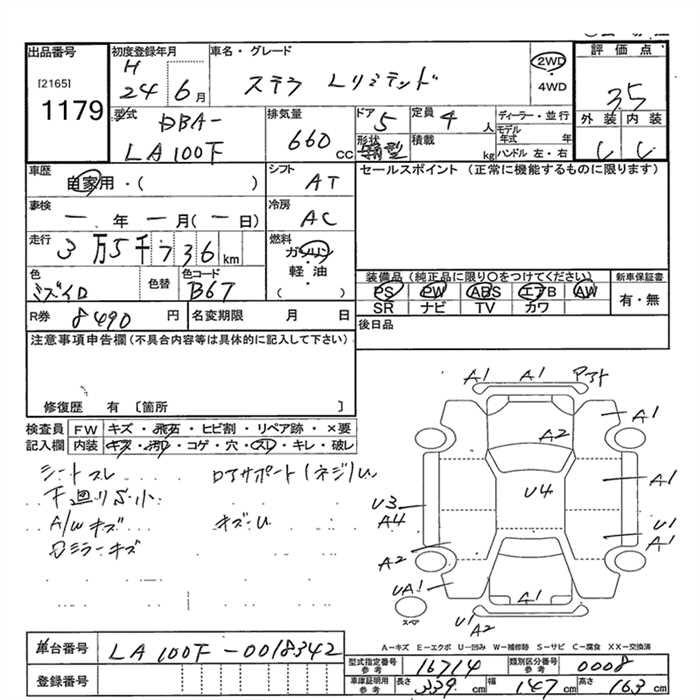 出品番号
[2165]
1179
初度登録年月
H
24 6月
車名・グレード
ステラ Lリミテッド
2WD
・
4WD
評価点
3.5
外装 内装
C C
型式
DBA-
LA100F
排気量
660cc
ドア
5
定員
4人
形状
箱型
積載
kg
ディーラー・並行
モデル年式 年
ハンドル 左・右
車歴
自家用・( )
シフト
AT
車検
一年 一月(一日)
冷房
AC
走行
3万5千736km
燃料
ガソリン
・
軽・油
・
( )
色
ミズイロ
色替
色コード
B67
R券 8490円
名変期限 月 日
セールスポイント (正常に機能するものに限ります)
装備品(純正品に限り○をつけてください)
PS PW ABS エアB AW
SR ナビ TV カワ
新車保証書
有・無
後日品
注意事項申告欄(不具合内容等は具体的に記入して下さい)
修復歴 有 〔箇所 〕
検査員記入欄
FW キズ・飛石・ヒビ割・リペア跡・×要
内装 キズ・汚れ・コゲ・穴・スレ・キレ・破レ
シートスレ
下廻りS小
A/Wキズ
ロミラーキズ
キズ・U
A1 A1
A1
A2
U4
A1
U3
A4
U1
A1
A2
UA1
A1
スペア
U1
A2
A-キズ E-エクボ U-凹み W-補修跡 S-サビ C-腐食 XX-交換済
車台番号 LA100F-0018342
登録番号
型式指定番号 参考 16714
類別区分番号 参考 0008
車庫証明用 参考 長さ 339cm 幅 147cm 高さ 163cm